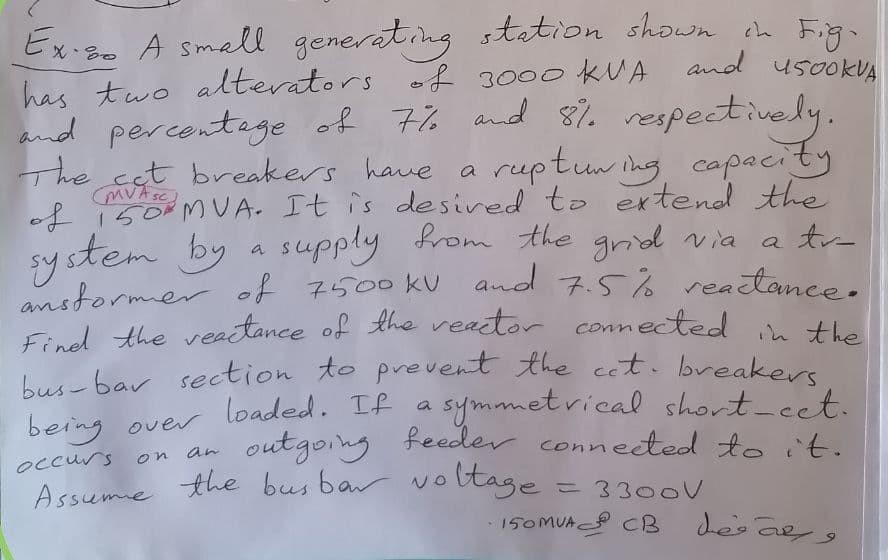 Ex.:- A small generating station shown in Fig.
has two alterators of 3000 KVA and 4500KVA
and percentage of 7% and 8% respectively.
The cct breakers have a rupturing capacity
MVAsc
of 150 MVA. It is desired to extend the
system by a supply from the grid via a tr-
ansformer of 7500 KV and 7.5% reactance.
Find the reactance of the reactor connected in the
bus-bar section to prevent the cct. breakers
being over loaded. If a symmetrical short-cct.
occurs on an outgoing feeder connected to it.
Assume the bus bar voltage = 3300V
150MVA CB